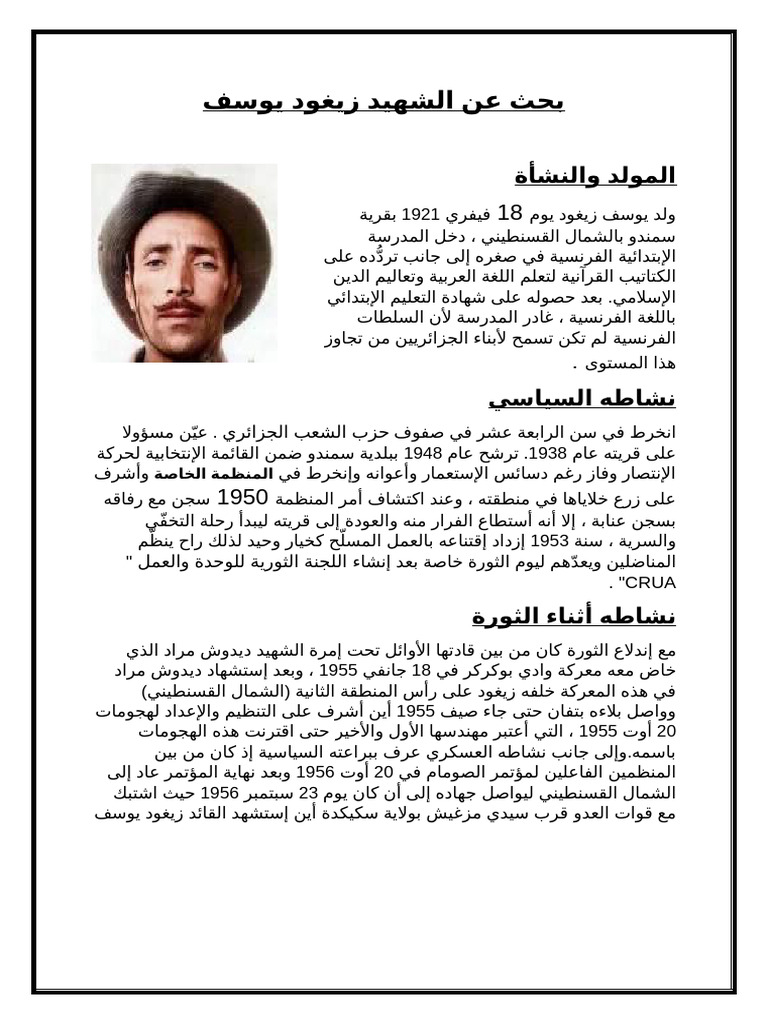 بحث عن الشهيد زيغود يوسف
المولد والنشأة
ولد يوسف زيغود يوم 18 فيفري 1921 بقرية
سمندو بالشمال القسنطيني ، دخل المدرسة
الإبتدائية الفرنسية في صغره إلى جانب تردُّده على
الكتاتيب القرآنية لتعلم اللغة العربية وتعاليم الدين
الإسلامي. بعد حصوله على شهادة التعليم الإبتدائي
باللغة الفرنسية ، غادر المدرسة لأن السلطات
الفرنسية لم تكن تسمح لأبناء الجزائريين من تجاوز
هذا المستوى .
نشاطه السياسي
انخرط في سن الرابعة عشر في صفوف حزب الشعب الجزائري . عيّن مسؤولا
على قريته عام 1938. ترشح عام 1948 ببلدية سمندو ضمن القائمة الإنتخابية لحركة
الإنتصار وفاز رغم دسائس الإستعمار وأعوانه وإنخرط في المنظمة الخاصة وأشرف
على زرع خلاياها في منطقته ، وعند اكتشاف أمر المنظمة 1950 سجن مع رفاقه
بسجن عنابة ، إلا أنه أستطاع الفرار منه والعودة إلى قريته ليبدأ رحلة التخفّي
والسرية ، سنة 1953 إزداد إقتناعه بالعمل المسلّح كخيار وحيد لذلك راح ينظّم
المناضلين ويعدّهم ليوم الثورة خاصة بعد إنشاء اللجنة الثورية للوحدة والعمل "
CRUA" .
نشاطه أثناء الثورة
مع إندلاع الثورة كان من بين قادتها الأوائل تحت إمرة الشهيد ديدوش مراد الذي
خاض معه معركة وادي بوكركر في 18 جانفي 1955 ، وبعد إستشهاد ديدوش مراد
في هذه المعركة خلفه زيغود على رأس المنطقة الثانية (الشمال القسنطيني)
وواصل بلاءه بتفان حتى جاء صيف 1955 أين أشرف على التنظيم والإعداد لهجومات
20 أوت 1955 ، التي أعتبر مهندسها الأول والأخير حتى اقترنت هذه الهجومات
باسمه.وإلى جانب نشاطه العسكري عرف ببراعته السياسية إذ كان من بين
المنظمين الفاعلين لمؤتمر الصومام في 20 أوت 1956 وبعد نهاية المؤتمر عاد إلى
الشمال القسنطيني ليواصل جهاده إلى أن كان يوم 23 سبتمبر 1956 حيث اشتبك
مع قوات العدو قرب سيدي مزغيش بولاية سكيكدة أين إستشهد القائد زيغود يوسف